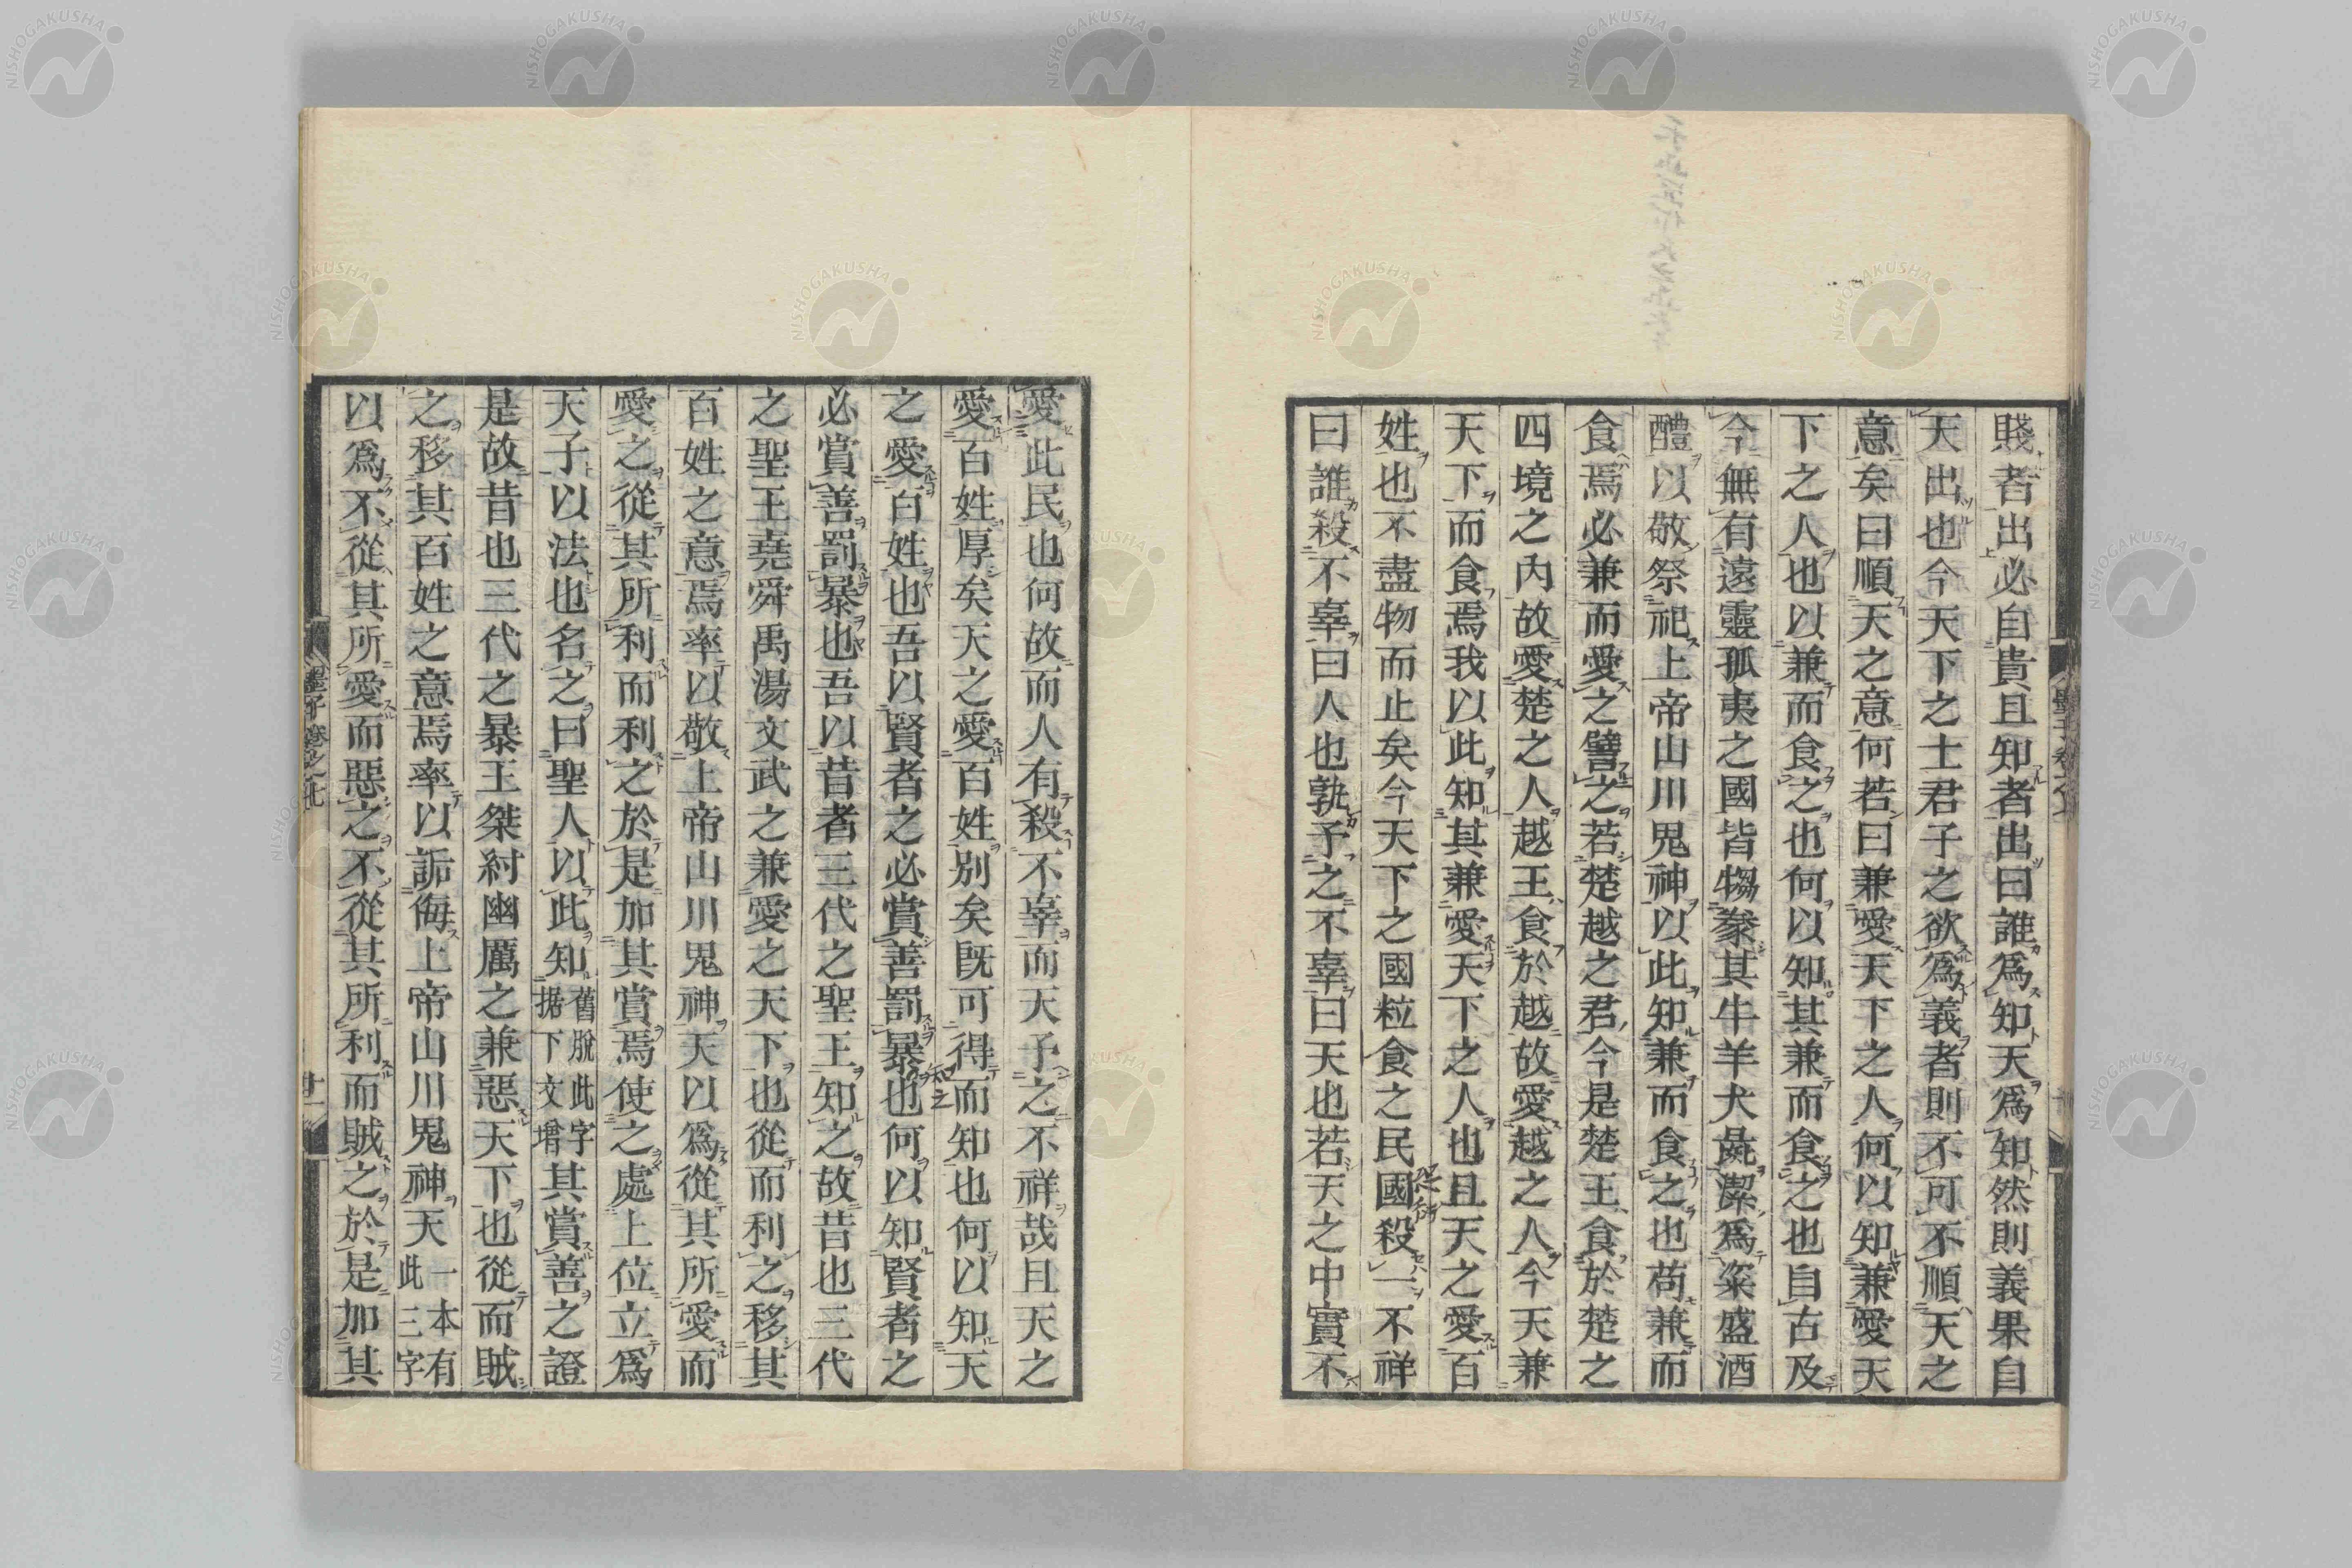 賤者出必自貴且知者出曰誰爲知天爲知然則義果自
天出也今天下之士君子之欲爲義者則不可不順天之
意矣曰順天之意何若曰兼愛天下之人何以知兼愛天
下之人也以兼而食之也何以知其兼而食之也自古及
今無有遠靈孤夷之國皆犓豢其牛羊犬彘潔爲粢盛酒
醴以敬祭祀上帝山川鬼神以此知兼而食之也苟兼而
食焉必兼而愛之譬之若楚越之君今是楚王食於楚之
四境之内故愛楚之人越王食於越故愛越之人今天兼
天下而食焉我以此知其兼愛天下之人也且天之愛百
姓也不盡物而止矣今天下之國粒食之民國殺一不祥
曰誰殺不辜曰人也孰予之不辜曰天也若天之中實不
愛此民也何故而人有殺不辜而天予之不祥哉且天之
愛百姓厚矣天之愛百姓別矣既可得而知也何以知天
之愛百姓也吾以賢者之必賞善罰暴也何以知賢者之
必賞善罰暴也吾以昔者三代之聖王知之故昔也三代
之聖王堯舜禹湯文武之兼愛之天下也從而利之移其
百姓之意焉率以敬上帝山川鬼神天以爲從其所愛而
愛之從其所利而利之於是加其賞焉使之處上位立爲
天子以法也名之曰聖人以此知舊脫此字据下文增其賞善之證
是故昔也三代之暴王桀紂幽厲之兼惡天下也從而賊
之移其百姓之意焉率以詬侮上帝山川鬼神天一本有此三字
以爲不從其所愛而惡之不從其所利而賊之於是加其
墨子卷之七
廿一
NISHOGAKUSHA